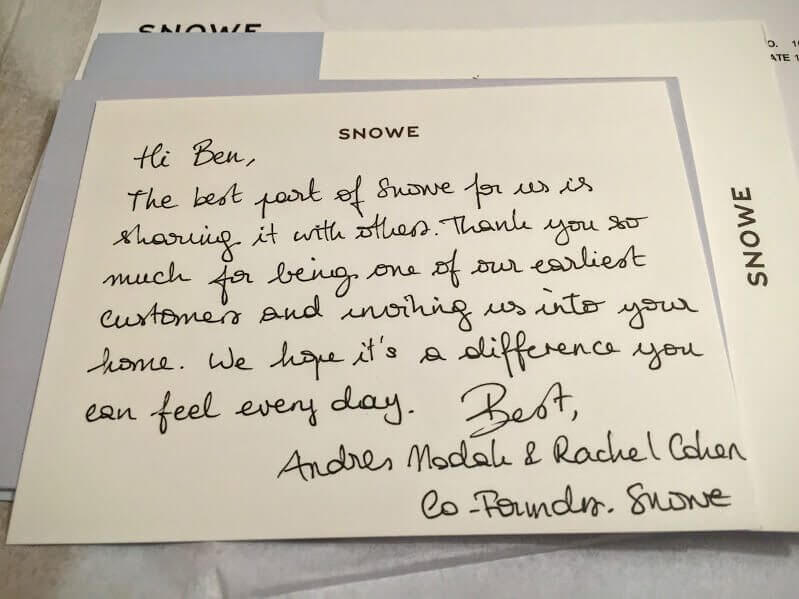 SNOWE
SNOWE
Hi Ben,
The best part of Snowe for us is
sharing it with others. Thank you so
much for being one of our earliest
customers and inviting us into your
home. We hope it's a difference you
can feel every day. Best,
Andres Modak & Rachel Cohen
Co-Founders. Snowe
SNOWE